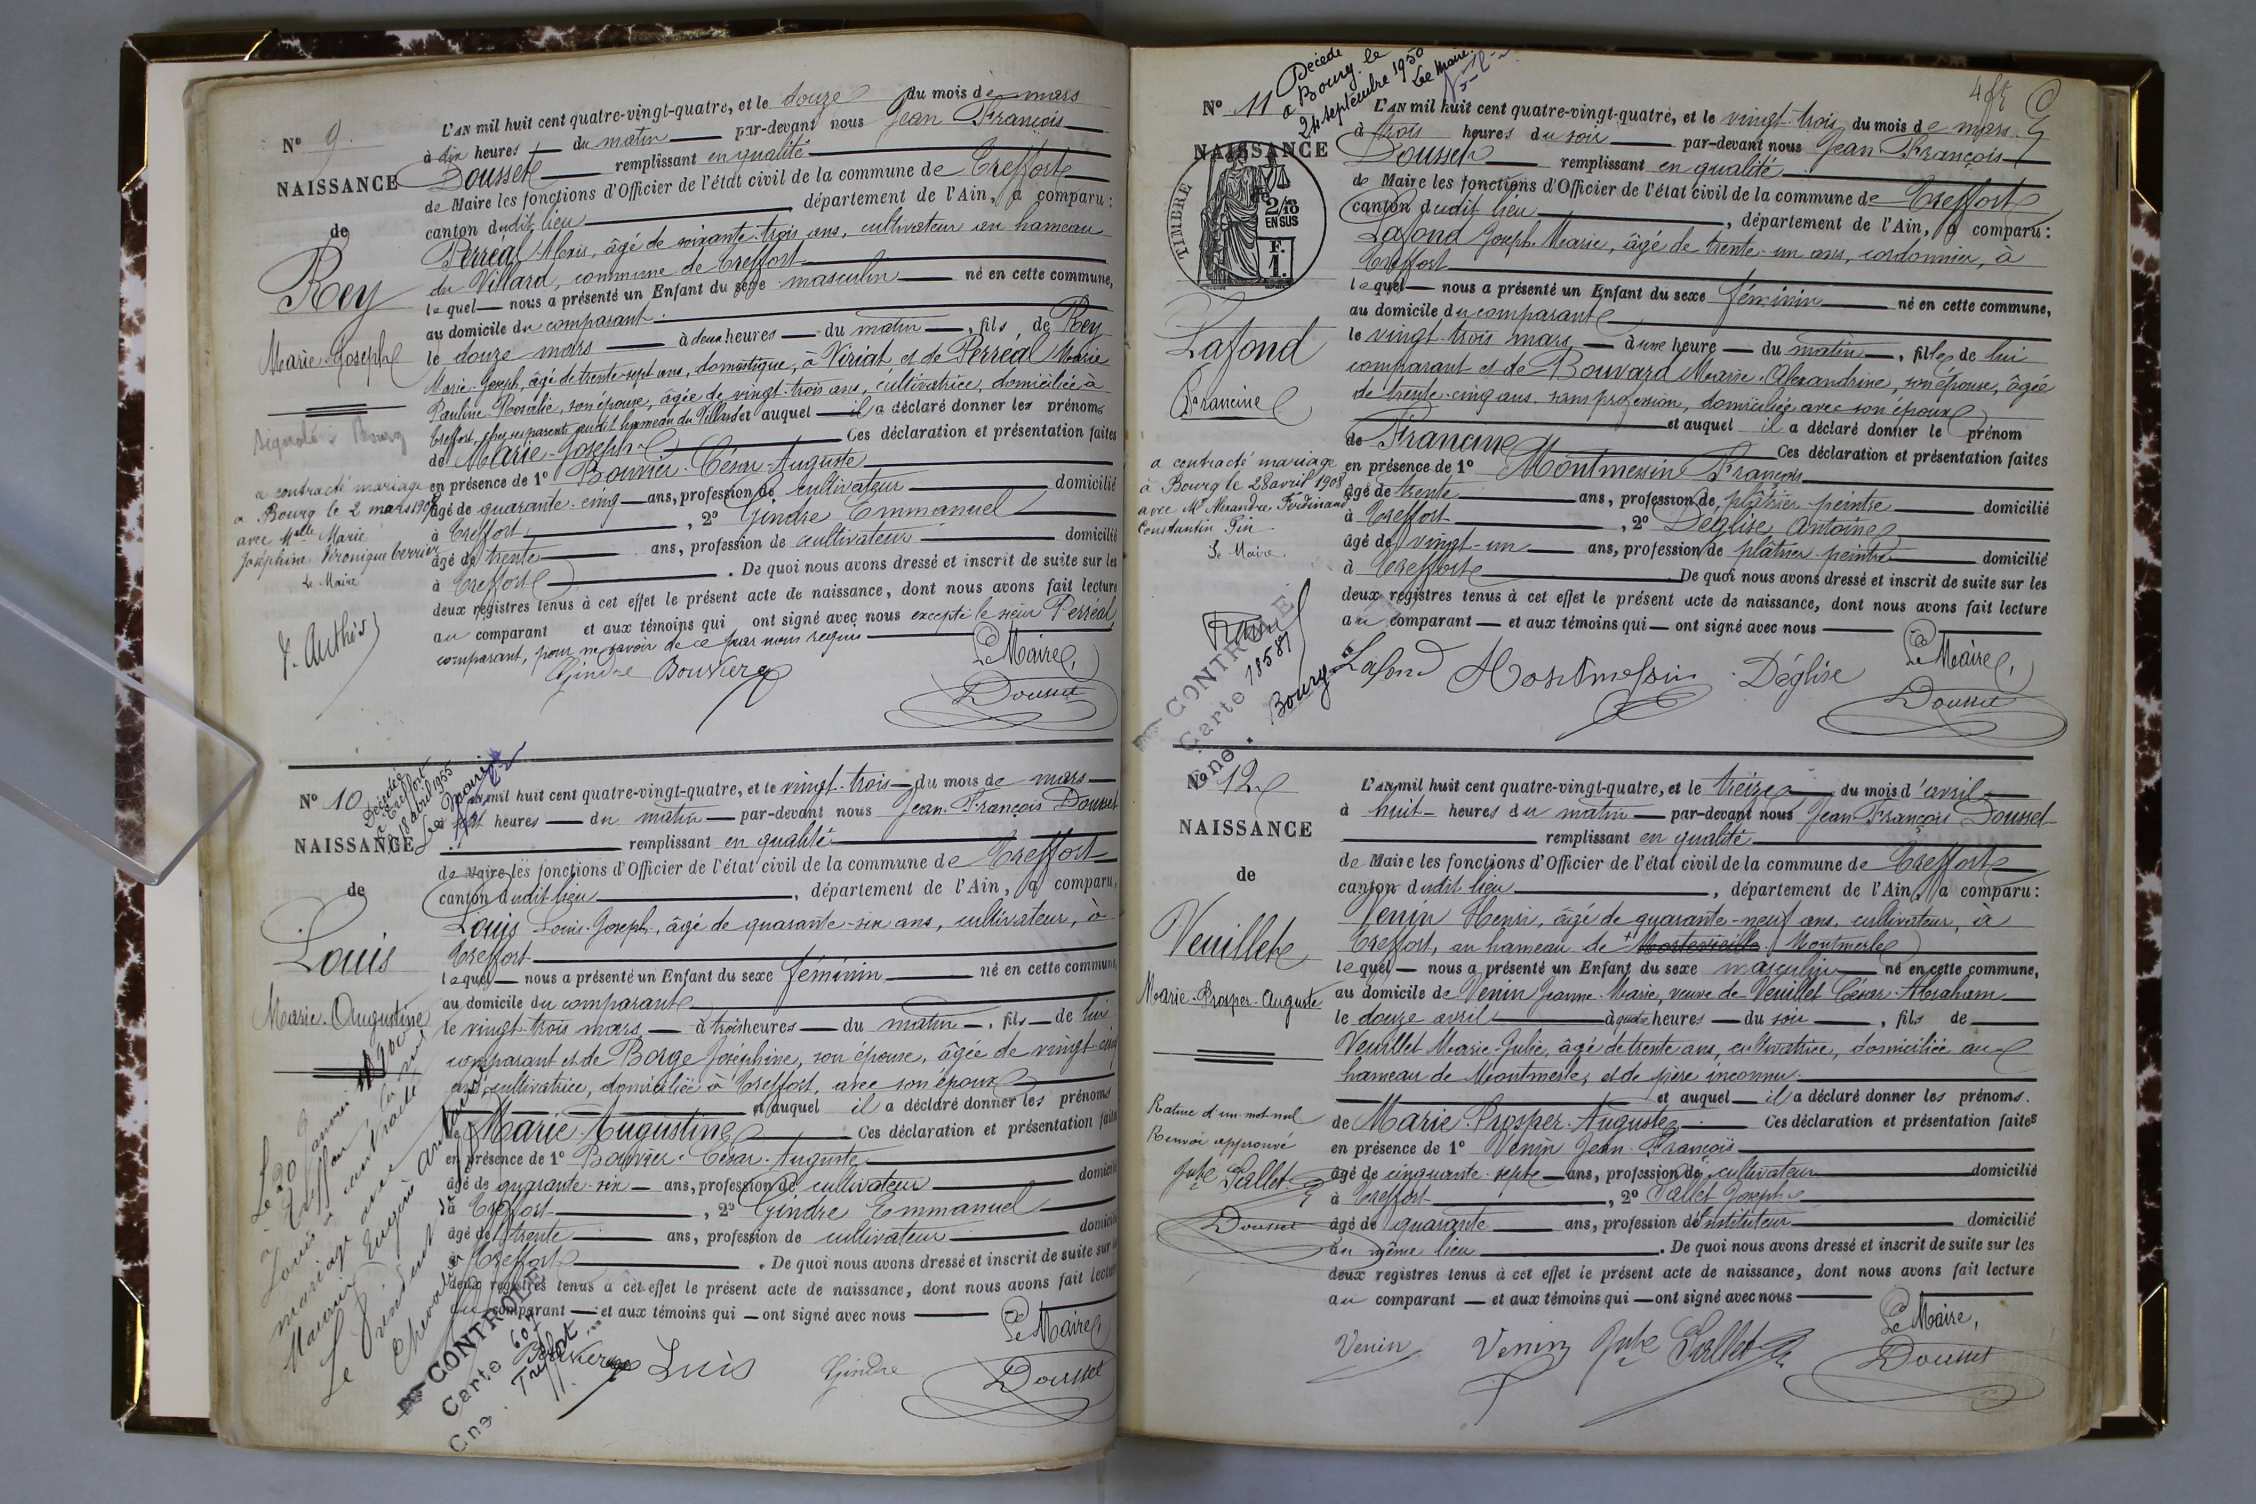 N° 9.
NAISSANCE
de
Rey
Marie-Joseph
a contracté mariage
à Bourg le 2 mars
avec Melle Marie
Joséphine Véronique
Le Maire
L'AN mil huit cent quatre-vingt-quatre, et le douze du mois de mars
à dix heures du matin par-devant nous Jean François
Dousset remplissant en qualité
de Maire les fonctions d'Officier de l'état civil de la commune de Treffort
canton dudit lieu, département de l'Ain, a comparu:
Perréal Alexis, âgé de soixante-trois ans, cultivateur au hameau
du Villard, commune de Treffort
lequel nous a présenté un Enfant du sexe masculin né en cette commune,
au domicile du comparant.
le douze mars à deux heures du matin, fils de Rey
Marie-Joseph, âgé de trente-sept ans, domestique, à Viriat et de Perréal Marie
Pauline Rosalie, son épouse, âgée de vingt-trois ans, cultivatrice, domiciliée à
Treffort, chez ses parents audit hameau du Villard et auquel il a déclaré donner les prénoms
de Marie-Joseph Ces déclaration et présentation faites
en présence de 1° Bouvier César-Auguste
âgé de quarante-cinq ans, profession de cultivateur domicilié
à Treffort, 2° Gindre Emmanuel
âgé de trente ans, profession de cultivateur domicilié
à Treffort. De quoi nous avons dressé et inscrit de suite sur les
deux registres tenus à cet effet le présent acte de naissance, dont nous avons fait lecture
au comparant et aux témoins qui ont signé avec nous excepté le sieur Perréal
comparant, pour ne savoir de ce par nous requis
Le Maire,
Gindre Bouvier
Dousset
N° 10
Décédée
à Treffort
le 18 avril 1955
Le Maire
NAISSANCE
de
Louis
Marie-Augustine
Le 20 Janvier 1900
à Treffort
Louis a contracté
mariage avec
Le Président
CONTROLE
Carte 607
Cne. Treffort
L'AN mil huit cent quatre-vingt-quatre, et le vingt-trois du mois de mars
à sept heures du matin par-devant nous Jean-François Dousset
remplissant en qualité
de Maire les fonctions d'Officier de l'état civil de la commune de Treffort
canton dudit lieu, département de l'Ain, a comparu,
Louis Louis-Joseph, âgé de quarante-six ans, cultivateur, à
Treffort
lequel nous a présenté un Enfant du sexe féminin né en cette commune
au domicile du comparant
le vingt-trois mars à trois heures du matin, fils de lui
comparant et de Borge Joséphine, son épouse, âgée de vingt-cinq
ans, cultivatrice, domiciliée à Treffort, avec son époux
et auquel il a déclaré donner les prénoms
de Marie-Augustine Ces déclaration et présentation faites
en présence de 1° Bouvier César-Auguste
âgé de quarante-six ans, profession de cultivateur domicilié
à Treffort, 2° Gindre Emmanuel
âgé de trente ans, profession de cultivateur domicilié
à Treffort. De quoi nous avons dressé et inscrit de suite sur
deux registres tenus à cet effet le présent acte de naissance, dont nous avons fait lecture
au comparant et aux témoins qui ont signé avec nous
Le Maire,
Bouvier Luis Gindre
Dousset
Décédé
à Bourg le
24 septembre 1950
Le Maire.
N° 11
NAISSANCE
TIMBRE
2/10
EN SUS
F.
1.
Lafond
Francine
a contracté mariage
à Bourg le 28 avril 1908
avec Mr Alexandre Ferdinand
Constantin Pin
Le Maire.
CONTROLE
Carte 18587
Cne. Bourg
L'AN mil huit cent quatre-vingt-quatre, et le vingt-trois du mois de mars
à trois heures du soir par-devant nous Jean François
Dousset remplissant en qualité
de Maire les fonctions d'Officier de l'état civil de la commune de Treffort
canton dudit lieu, département de l'Ain, a comparu:
Lafond Joseph-Marie, âgé de trente-un ans, cordonnier, à
Treffort
lequel nous a présenté un Enfant du sexe féminin né en cette commune,
au domicile du comparant
le vingt-trois mars à une heure du matin, fille de lui
comparant et de Bouvard Marie-Alexandrine, son épouse, âgée
de trente-cinq ans, sans profession, domiciliée avec son époux
et auquel il a déclaré donner le prénom
de Francine Ces déclaration et présentation faites
en présence de 1° Montmessin François
âgé de trente ans, profession de plâtrier-peintre domicilié
à Treffort, 2° Déglise Antoine
âgé de vingt-un ans, profession de plâtrier-peintre domicilié
à Treffort De quoi nous avons dressé et inscrit de suite sur les
deux registres tenus à cet effet le présent acte de naissance, dont nous avons fait lecture
au comparant et aux témoins qui ont signé avec nous
Le Maire,
Lafond Montmessin Déglise
Dousset
N° 12
NAISSANCE
de
Veuillet
Marie-Prosper-Auguste
Rature d'un mot nul
Renvoi approuvé
Dousset
L'AN mil huit cent quatre-vingt-quatre, et le treize du mois d'avril
à huit heures du matin par-devant nous Jean François Dousset
remplissant en qualité
de Maire les fonctions d'Officier de l'état civil de la commune de Treffort
canton dudit lieu, département de l'Ain, a comparu:
Venin Henri, âgé de quarante-neuf ans, cultivateur, à
Treffort, au hameau de Montmerle
lequel nous a présenté un Enfant du sexe masculin né en cette commune,
au domicile de Venin Jeanne-Marie, veuve de Veuillet César-Abraham
le douze avril à quatre heures du soir, fils de
Veuillet Marie-Julie, âgé de trente ans, cultivatrice, domiciliée au
hameau de Montmerle, et de père inconnu
et auquel il a déclaré donner les prénoms.
de Marie-Prosper-Auguste Ces déclaration et présentation faites
en présence de 1° Venin Jean-François
âgé de cinquante-sept ans, profession de cultivateur domicilié
à Treffort, 2° Sallet Joseph
âgé de quarante ans, profession d'Instituteur domicilié
au même lieu. De quoi nous avons dressé et inscrit de suite sur les
deux registres tenus à cet effet le présent acte de naissance, dont nous avons fait lecture
au comparant et aux témoins qui ont signé avec nous
Le Maire,
Venin Venin Jph Sallet
Dousset